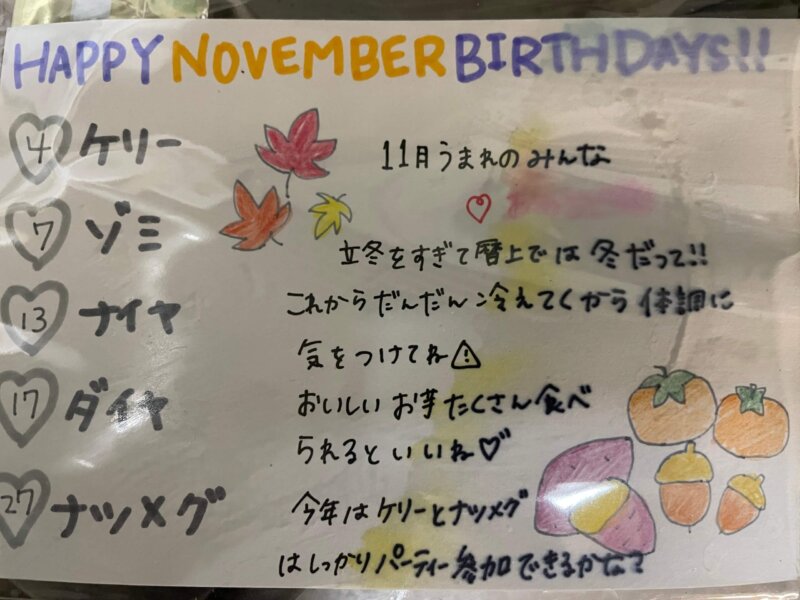 HAPPY NOVEMBER BIRTHDAYS!!
4 ケリー
7 ゾミ
13 ナイヤ
17 ダイヤ
27 ナツメグ
11月うまれのみんな
♡
立冬をすぎて暦上では冬だって!!
これからだんだん冷えてくから体調に
気をつけてね⚠
おいしいお芋たくさん食べ
られるといいね♡
今年はケリーとナツメグ
はしっかりパーティー参加できるかな?